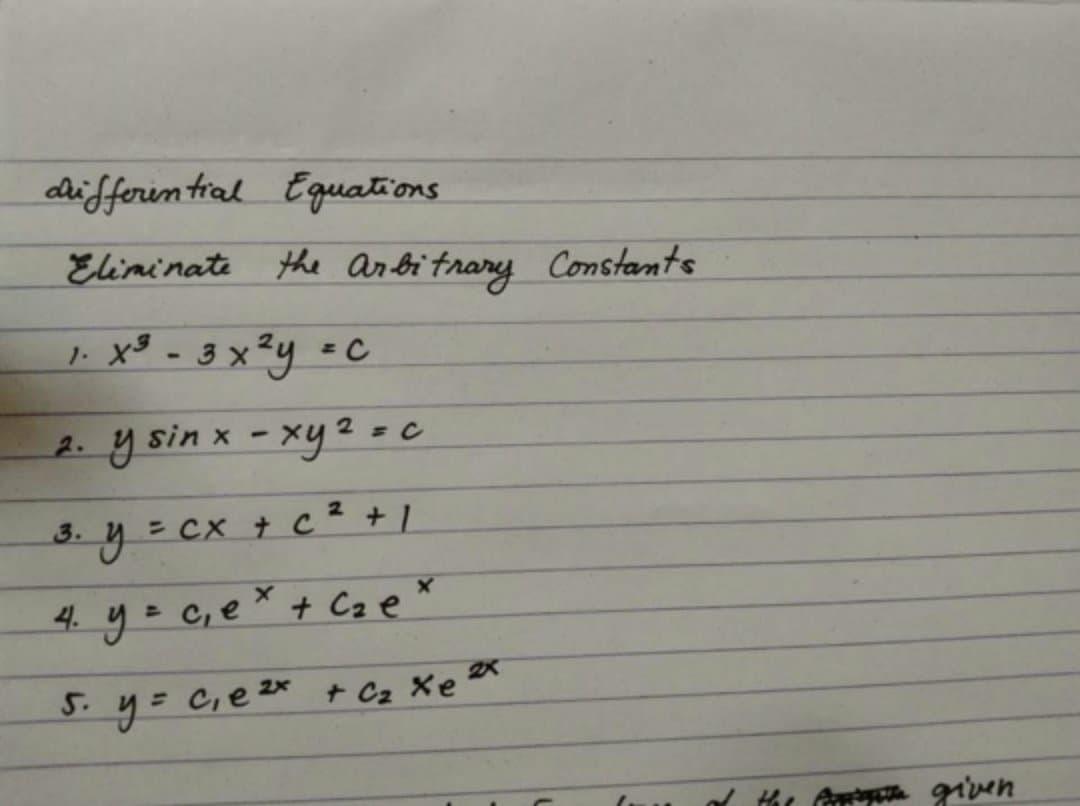 Differential Equations
Eliminate the Arbitrary Constants
1. x³ - 3x²y = c
2. y sin x - xy² = c
3. y = cx + c² + 1
4. y = c₁eˣ + c₂eˣ
5. y = c₁e²ˣ + c₂ xe²ˣ
the given